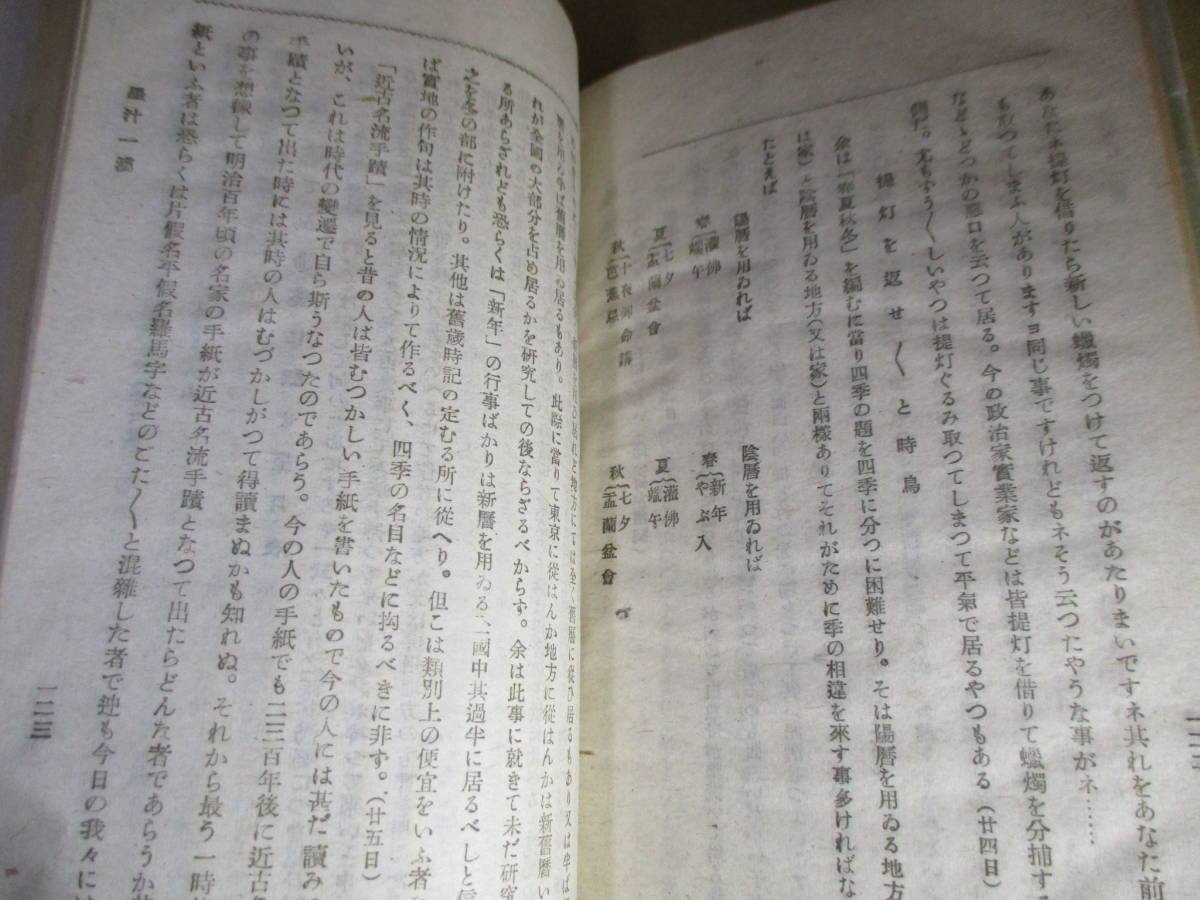 あなたネ提灯を借りたら新しい蠟燭をつけて返すのがあたりまいですネ其れをあなた前
も取つてしまふ人がありますヨ同じ事ですけれどもネそう云つたやうな事がネ……
などゝどつかの惡口を云つて居る。今の政治家實業家などは皆提灯を借りて蠟燭を分捕す
側だ。尤もずう〳〵しいやつは提灯ぐるみ取つてしまつて平氣で居るやつもある（廿四日）
提灯を返せ〳〵と時鳥
余は「春夏秋冬」を編むに當り四季の題を四季に分つに困難せり。そは陽曆を用ゐる地方
は家）と陰曆を用ゐる地方（又は家）と兩樣ありてそれがために季の相違を來す事多ければな
たとえば
陽曆を用ゐれば
春 灌佛 端午
夏 七夕 盂蘭盆會
秋 十夜 御命講 芭蕉忌
陰曆を用ゐれば
春 新年 やぶ入
夏 灌佛 端午
秋 七夕 盂蘭盆會
は全く舊曆に從ひ居るもあり又は半ば
曆を用ゐ半ば舊曆を用ゐ居るもあり。此際に當りて東京に從はんか地方に從はんかは新舊曆い
れが全國の大部分を占め居るかを研究しての後ならざるべからず。余は此事に就きて未だ研究
る所あらざれども恐らくは「新年」の行事ばかりは新曆を用ゐる、國中其過半に居るべしと信
之を冬の部に附けたり。其他は舊歲時記の定むる所に從へり。但こは類別上の便宜をいふ者
ば實地の作句は其時の情況によりて作るべく、四季の名目などに拘るべきに非ず。（廿五日）
「近古名流手蹟」を見ると昔の人は皆むつかしい手紙を書いたもので今の人には甚だ讀み
いが、これは時代の變遷で自ら斯うなつたのであらう。今の人の手紙でも二三百年後に近古
手蹟となつて出た時には其時の人はむづかしがつて得讀まぬかも知れぬ。それから最う一時
の事を想像して明治百年頃の名家の手紙が近古名流手蹟となつて出たらどんな者であらうか
紙といふ者は恐らくは片假名平假名羅馬字などのごた〳〵と混雜した者で迚も今日の我々に
墨汁一滴
一二三